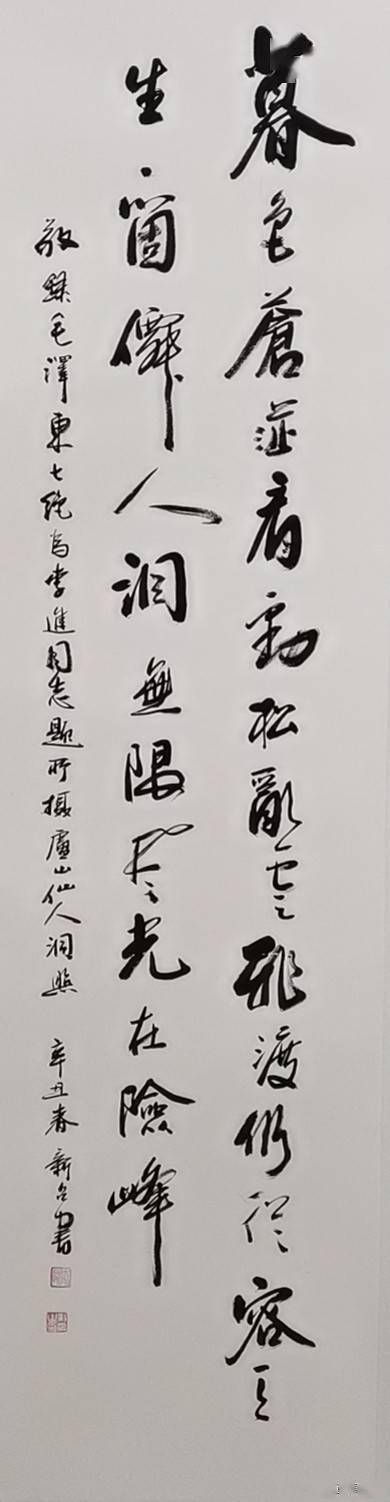 暮色蒼茫看勁松亂雲飛渡仍從容天
生一箇僊人洞無限風光在險峰
敬錄毛澤東七絕為李進同志題所攝廬山仙人洞照 辛丑春 新書